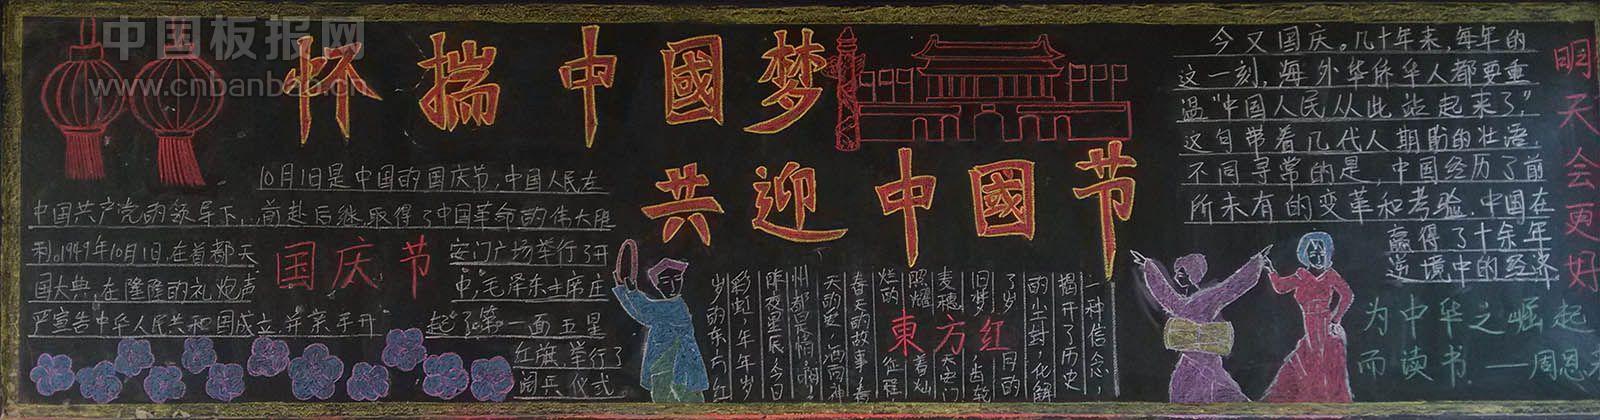 中国板报网
www.cnbanbao.cn
怀揣中國梦
共迎中國节
10月1日是中国的国庆节,中国人民在
中国共产党的领导下,前赴后继,取得了中国革命的伟大胜
利。1949年10月1日,在首都天
安门广场举行了开
国大典,在隆隆的礼炮声
中,毛泽东主席庄
严宣告中华人民共和国成立,并亲手升
起了第一面五星
红旗,举行了
阅兵仪式
国庆节
一种信念,
揭开了历史
的尘封,化解
了岁月的
旧梦,齿轮
麦穗天安门
照耀着灿
烂的征程
春天的故事
天的爱,洒雨神
州都是情
昨夜星辰,今日
彩虹,年年岁
岁的东方红
東方红
今又国庆。几十年来,每年的
这一刻,海外华侨华人都要重
温"中国人民从此站起来了"
这句带着几代人期盼的壮语,
不同寻常的是,中国经历了前
所未有的变革和考验.中国在
赢得了十余年
逆境中的经济
明天会更好
为中华之崛起
而读书——周恩